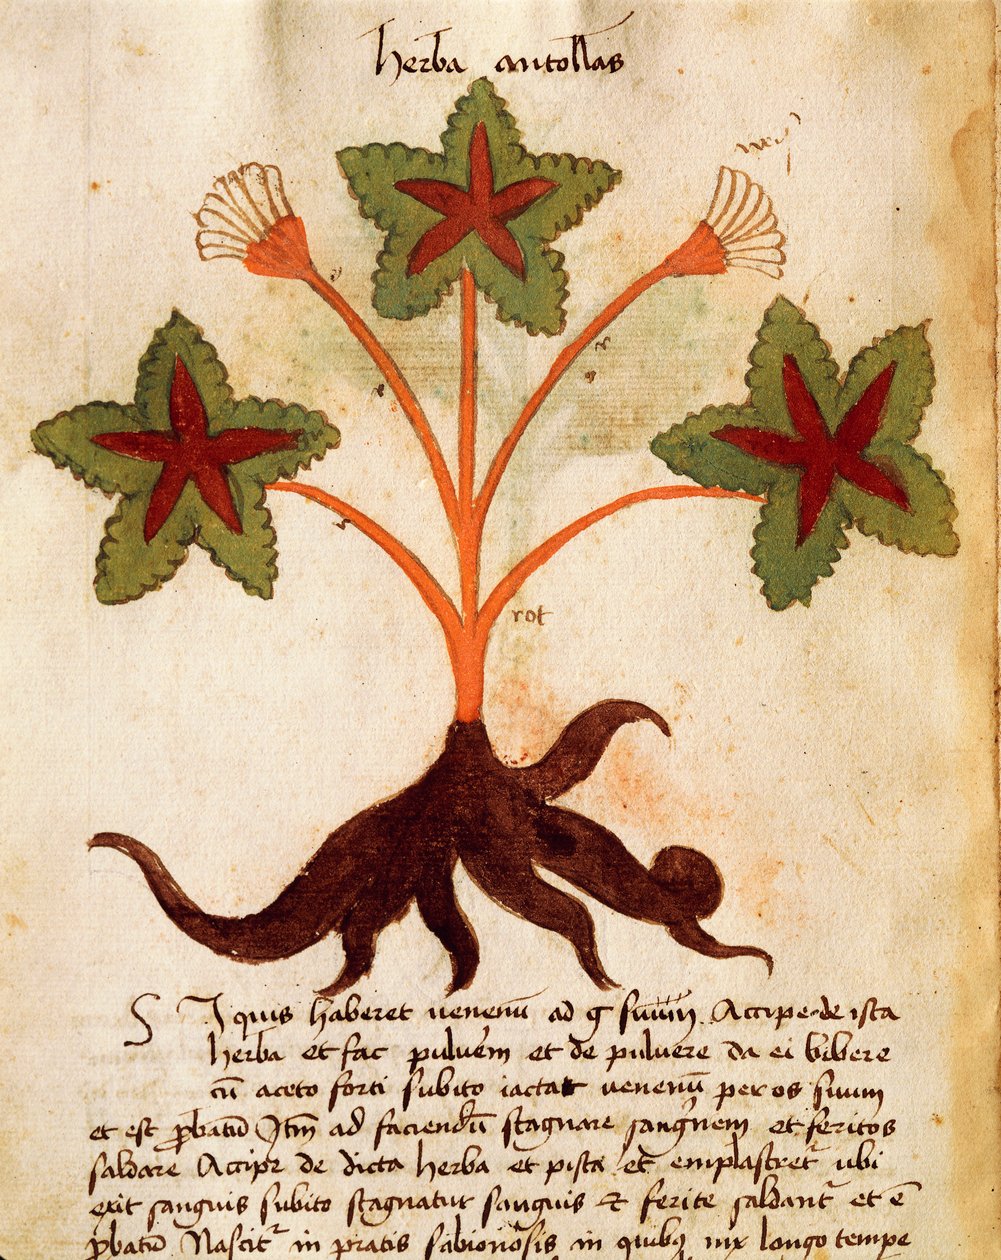 herba antollas
rot
Siquis haberet uenenū ad g suūm Accipe de ista
herba et fac puluem et de puluere da ei bibere
cū aceto forti subito iactat uenenū per os suum
et est pbatū Itm ad faciendū stagnare sangnem et feritos
saldare Accipe de dicta herba et pista et emplastret ubi
exit sanguis subito stagnatur sanguis et ferite saldant et ē
pbatū Nascit in pratis sabionosis in quibq nix longo tempe